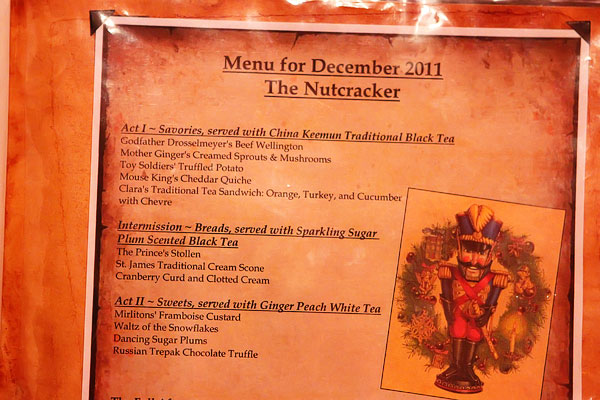 Menu for December 2011
The Nutcracker
Act I ~ Savories, served with China Keemun Traditional Black Tea
Godfather Drosselmeyer's Beef Wellington
Mother Ginger's Creamed Sprouts & Mushrooms
Toy Soldiers' Truffled Potato
Mouse King's Cheddar Quiche
Clara's Traditional Tea Sandwich: Orange, Turkey, and Cucumber
with Chevre
Intermission ~ Breads, served with Sparkling Sugar
Plum Scented Black Tea
The Prince's Stollen
St. James Traditional Cream Scone
Cranberry Curd and Clotted Cream
Act II ~ Sweets, served with Ginger Peach White Tea
Mirlitons' Framboise Custard
Waltz of the Snowflakes
Dancing Sugar Plums
Russian Trepak Chocolate Truffle